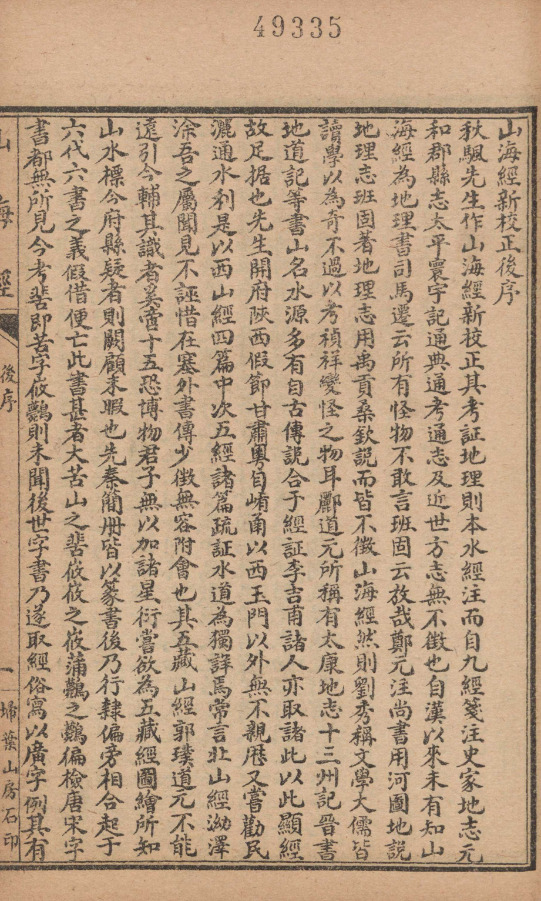 49335
山海經新校正後序
秋颿先生作山海經新校正其考証地理則本水經注而自九經箋注史家地志元
和郡縣志太平寰宇記通典通考通志及近世方志無不徵也自漢以來未有知山
海經為地理書司馬遷云所有怪物不敢言班固云放哉鄭元注尚書用河圖地說
地理志班固著地理志用禹貢桑欽說而皆不徵山海經然則劉秀稱文學大儒皆
讀學以為奇不過以考禎祥變怪之物耳酈道元所稱有太康地志十三州記晉書
地道記等書山名水源多有自古傳說合于經証李吉甫諸人亦取諸此以此顯經
故足据也先生開府陝西假節甘肅粵自崤函以西玉門以外無不親歷又嘗勸民
灑通水利是以西山經四篇中次五經諸篇疏証水道為獨詳焉常言北山經泑澤
涂吾之屬聞見不誣惜在塞外書傳少徵無容附會也其五藏山經郭璞道元不能
遠引今輔其識者奚啻十五恐博物君子無以加諸星衍嘗欲為五藏經圖繪所知
山水標今府縣疑者則闕顧未暇也先秦簡冊皆以篆書後乃行隸偏旁相合起于
六代六書之義假借便亡此書甚者大苦山之𦽅莜莜之莜蒲鸛之鸛偏檢唐宋字
書都無所見今考𦽅即苦字莜鸛則未聞後世字書乃遂取經俗寫以廣字例其有
山海經
後序
一
埽葉山房石印